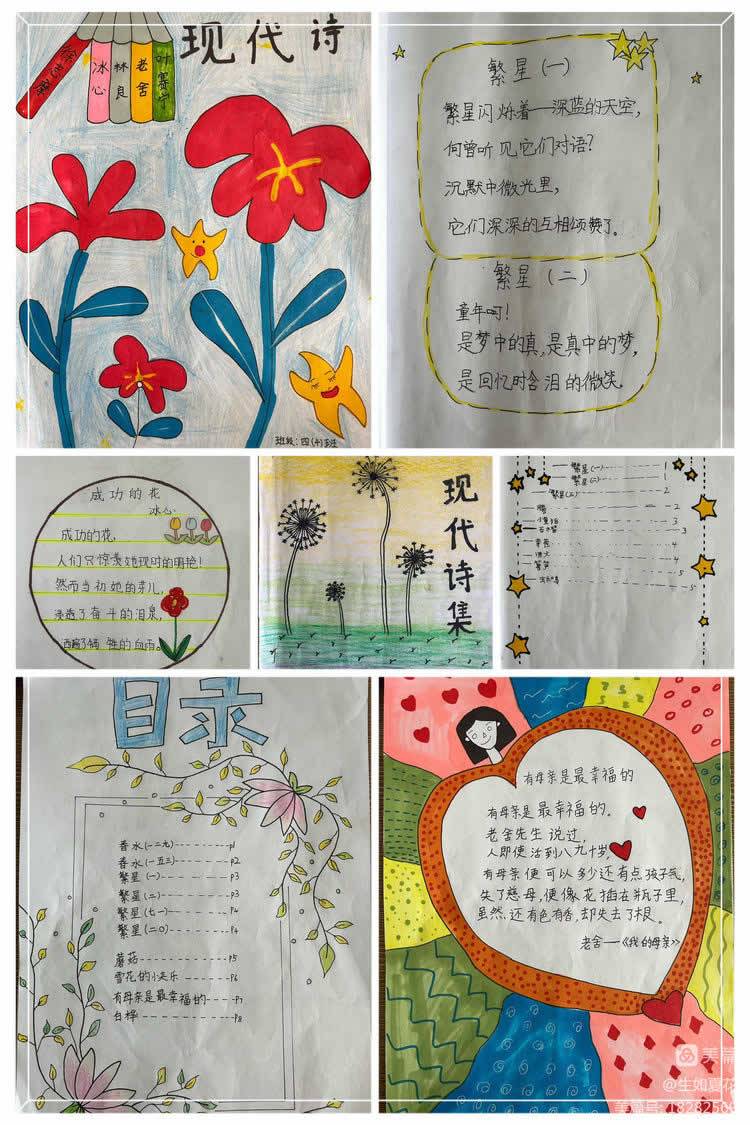 现代诗
徐志摩
冰心
林良
老舍
叶赛宁
班级：四(4)班
繁星（一）
繁星闪烁着——深蓝的天空，
何曾听见它们对语？
沉默中微光里，
它们深深的互相颂赞了。
繁星（二）
童年呵！
是梦中的真，是真中的梦，
是回忆时含泪的微笑。
成功的花
冰心
成功的花，
人们只惊羡她现时的明艳！
然而当初她的芽儿，
浸透了奋斗的泪泉，
洒遍了牺牲的血雨。
现代诗集
繁星(一) 1
繁星(二) 1
繁星(三) 2
2
3
3
4
4
5
5
目录
香水(一二九) p1
香水(一五三) p2
繁星(一) p3
繁星(二) p3
繁星(七一) p4
繁星(二〇) p4
蘑菇 p5
雪花的小快乐 p6
有母亲是最幸福的 p7
白桦 p8
有母亲是最幸福的
有母亲是最幸福的。
老舍先生说过，
人即使活到八九十岁，
有母亲便可以多少还有点孩子气，
失了慈母，便像花插在瓶子里，
虽然还有色有香，却失去了根。
老舍——《我的母亲》
美篇
@生如夏花
美篇号：18282506